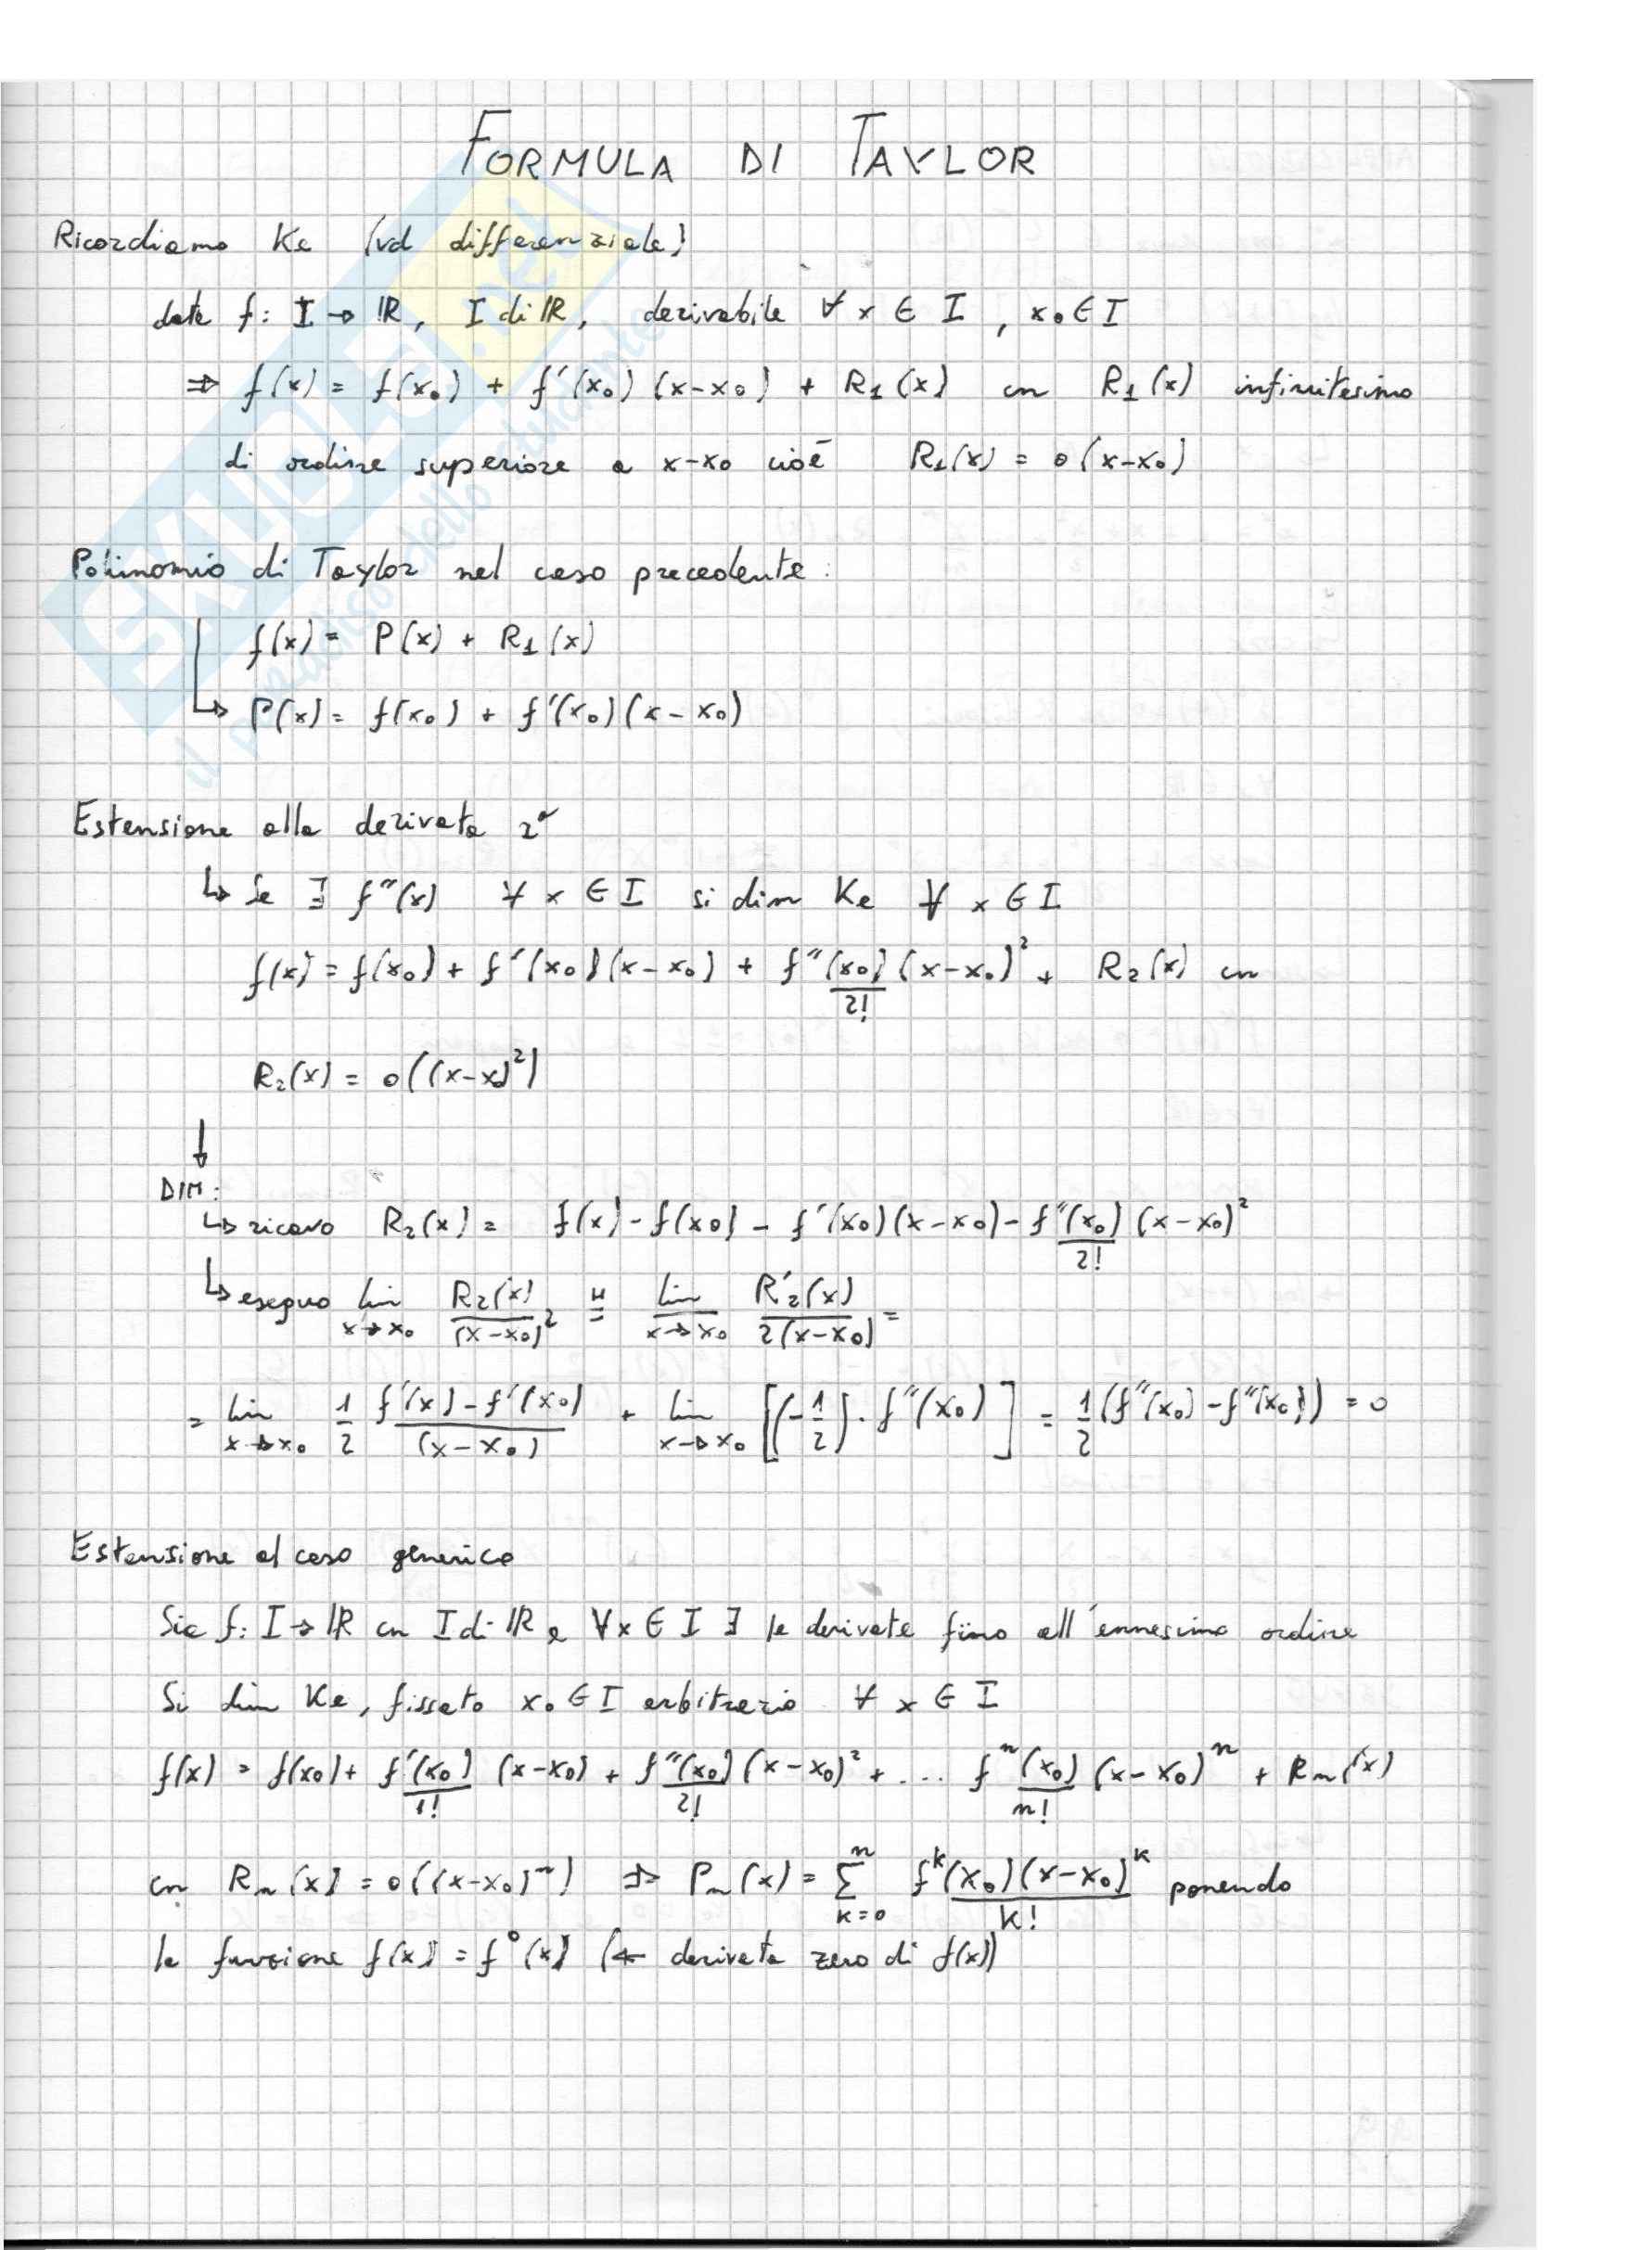 FORMULA DI TAYLOR
Ricordiamo Ke (vd differenziale)
data f: I → ℝ, I di ℝ, derivabile ∀ x ∈ I, x₀ ∈ I
⇒ f(x) = f(x₀) + f'(x₀) (x-x₀) + R₁(x) cn R₁(x) infinitesimo
di ordine superiore a x-x₀ cioè R₁(x) = o(x-x₀)
Polinomio di Taylor nel caso precedente:
f(x) = P(x) + R₁(x)
↳ P(x) = f(x₀) + f'(x₀)(x-x₀)
Estensione alla derivata 2ª
↳ Se ∃ f''(x) ∀ x ∈ I si dim Ke ∀ x ∈ I
f(x) = f(x₀) + f'(x₀)(x-x₀) + f''(x₀)/2! (x-x₀)² + R₂(x) cn
R₂(x) = o((x-x₀)²)
↓
DIM:
↳ ricavo R₂(x) = f(x) - f(x₀) - f'(x₀)(x-x₀) - f''(x₀)/2! (x-x₀)²
↳ eseguo lim x→x₀ R₂(x)/(x-x₀)² =ᴴ lim x→x₀ R'₂(x)/2(x-x₀) =
= lim x→x₀ 1/2 f'(x)-f'(x₀)/(x-x₀) + lim x→x₀ [(-1/2)·f''(x₀)] = 1/2 (f''(x₀)-f''(x₀)) = 0
Estensione al caso generico
Sia f: I → ℝ cn I di ℝ e ∀x ∈ I ∃ le derivate fino all'ennesimo ordine
Si dim Ke, fissato x₀ ∈ I arbitrario ∀ x ∈ I
f(x) = f(x₀) + f'(x₀)/1! (x-x₀) + f''(x₀)/2! (x-x₀)² + ... fⁿ(x₀)/n! (x-x₀)ⁿ + Rₙ(x)
cn Rₙ(x) = o((x-x₀)ⁿ) ⇒ Pₙ(x) = Σ k=0 n fᵏ(x₀)(x-x₀)ᵏ/k! ponendo
la funzione f(x) = f⁰(x) (← derivata zero di f(x))
SKUOLA.net
il paradiso dello studente